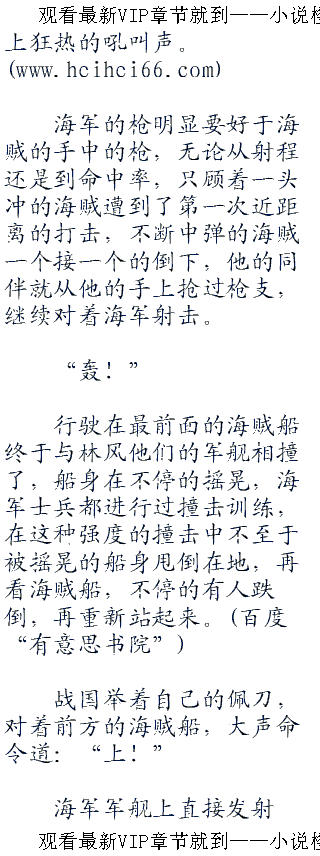 观看最新VIP章节就到——小说
上狂热的吼叫声。
(www.hcihci66.com)
海军的枪明显要好于海
贼的手中的枪，无论从射程
还是到命中率，只顾着一头
冲的海贼遭到了第一次近距
离的打击，不断中弹的海贼
一个接一个的倒下，他的同
伴就从他的手上抢过枪支，
继续对着海军射击。
“轰！”
行驶在最前面的海贼船
终于与林风他们的军舰相撞
了，船身在不停的摇晃，海
军士兵都进行过撞击训练，
在这种强度的撞击中不至于
被摇晃的船身甩倒在地，再
看海贼船，不停的有人跌
倒，再重新站起来。(百度
“有意思书院”)
战国举着自己的佩刀，
对着前方的海贼船，大声命
令道：“上！”
海军军舰上直接发射
观看最新VIP章节就到——小说